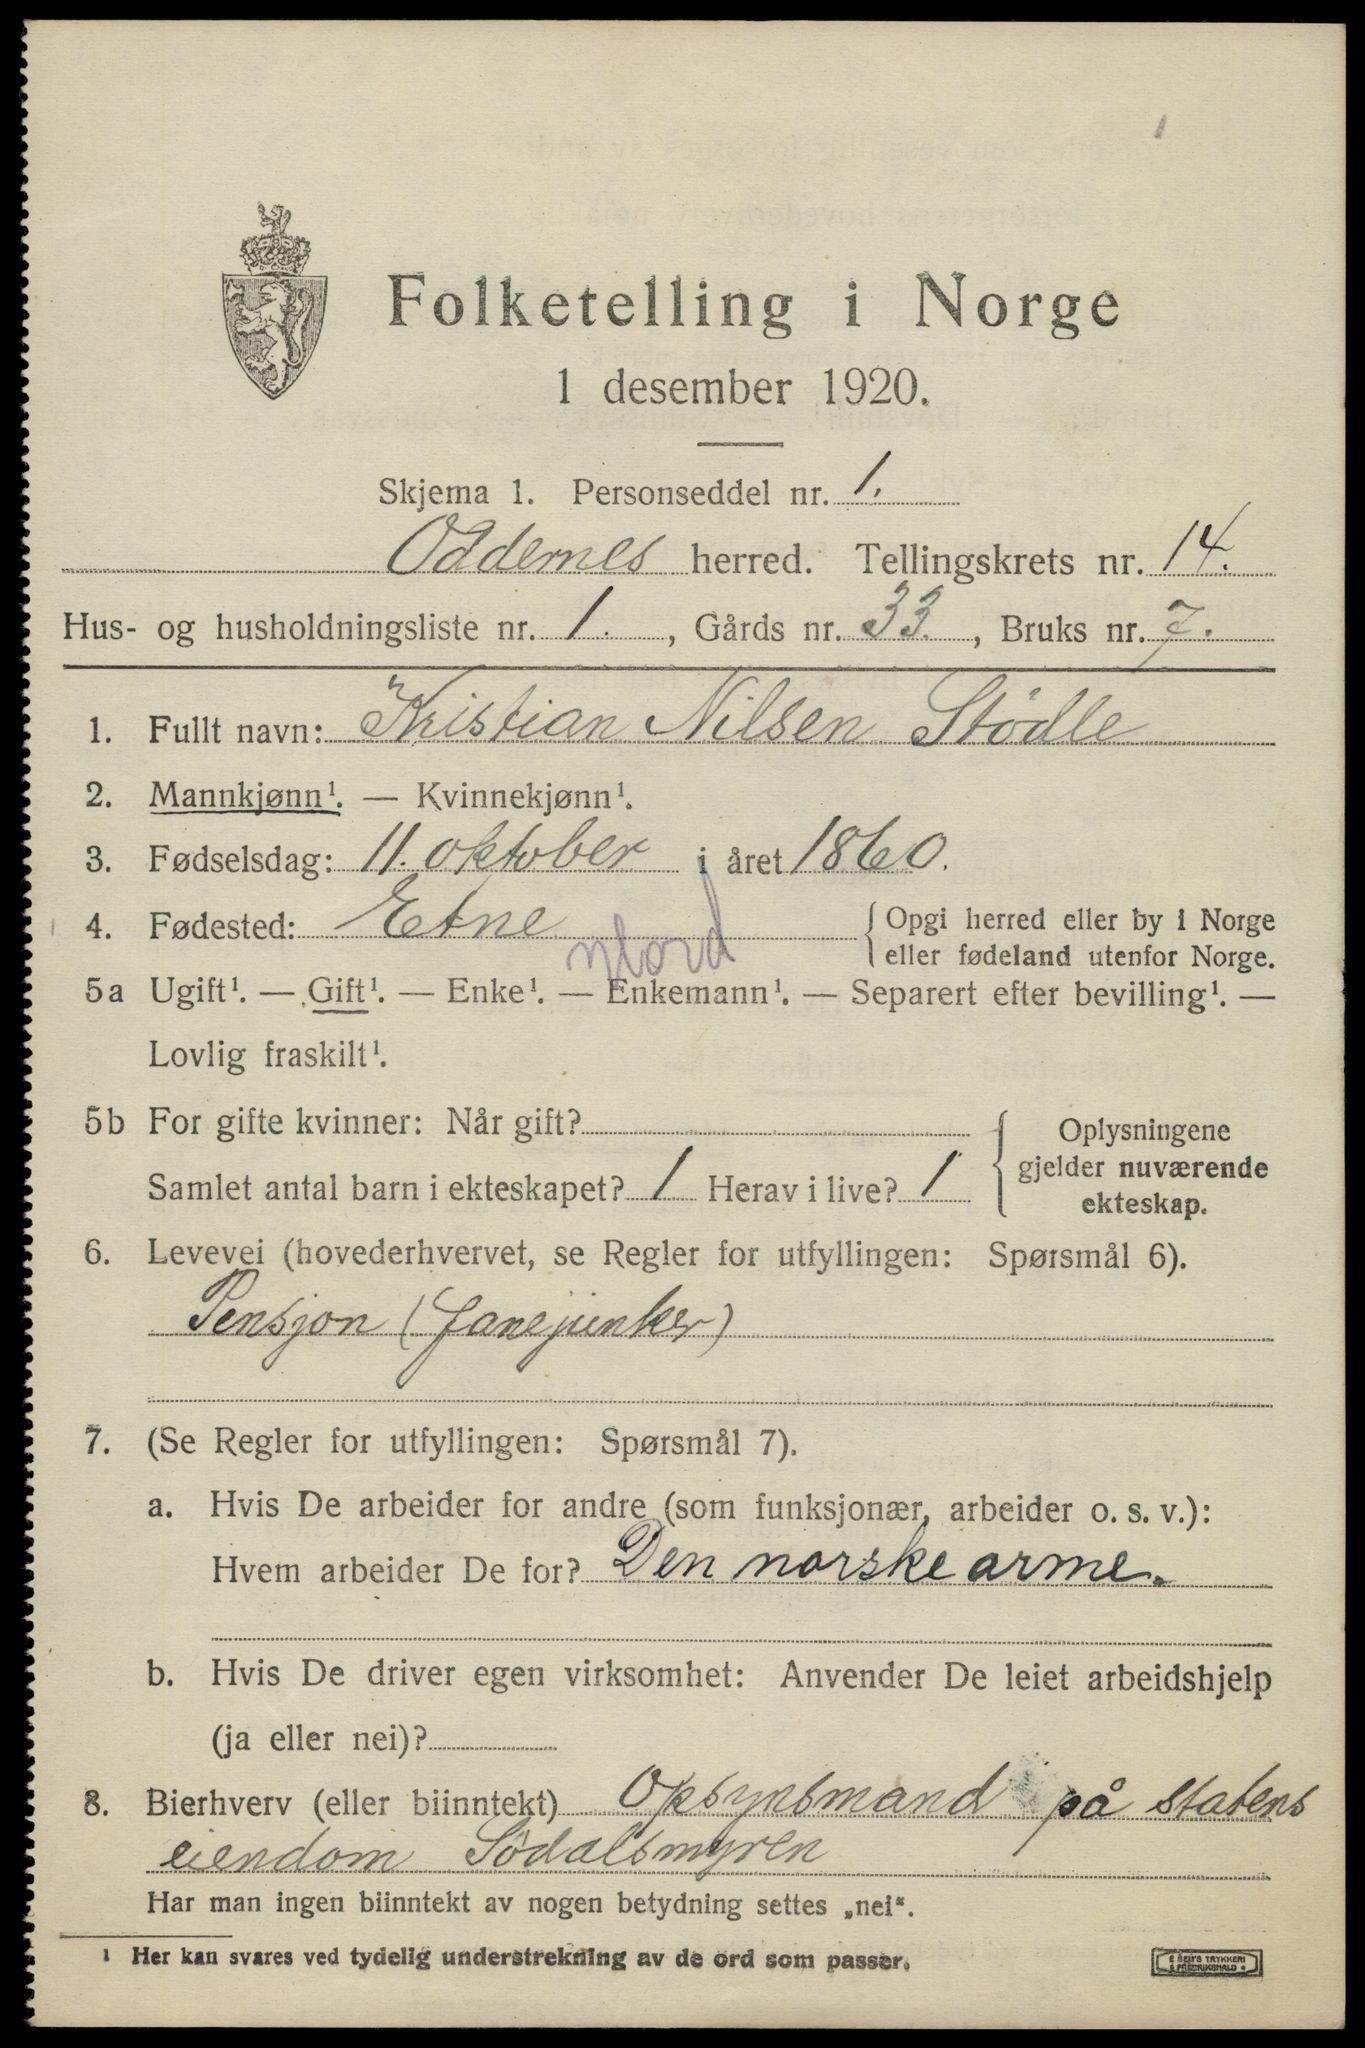 Folketelling i Norge
1 desember 1920.
Skjema 1. Personseddel nr. 1.
Oddernes herred. Tellingskrets nr. 14.
Hus- og husholdningsliste nr. 1. , Gårds nr. 33. , Bruks nr. 7.
1. Fullt navn: Kristian Nilsen Stödle
2. Mannkjønn¹. — Kvinnekjønn¹.
3. Fødselsdag: 11. oktober i året 1860.
4. Fødested: Etne { Opgi herred eller by i Norge
eller fødeland utenfor Norge.
5a Ugift¹. — Gift¹. — Enke¹. — Enkemann¹. — Separert efter bevilling¹. —
Lovlig fraskilt¹.
5b For gifte kvinner: Når gift?
Samlet antal barn i ekteskapet? 1 Herav i live? 1
{ Oplysningene
gjelder nuværende
ekteskap.
6. Levevei (hovederhvervet, se Regler for utfyllingen: Spørsmål 6).
Pensjon (fanejunker)
7. (Se Regler for utfyllingen: Spørsmål 7).
a. Hvis De arbeider for andre (som funksjonær, arbeider o. s. v.):
Hvem arbeider De for? Den norske arme.
b. Hvis De driver egen virksomhet: Anvender De leiet arbeidshjelp
(ja eller nei)?
8. Bierhverv (eller biinntekt) Opsynsmand på statens
eiendom Södalsmyren
Har man ingen biinntekt av nogen betydning settes „nei“.
¹ Her kan svares ved tydelig understrekning av de ord som passer.